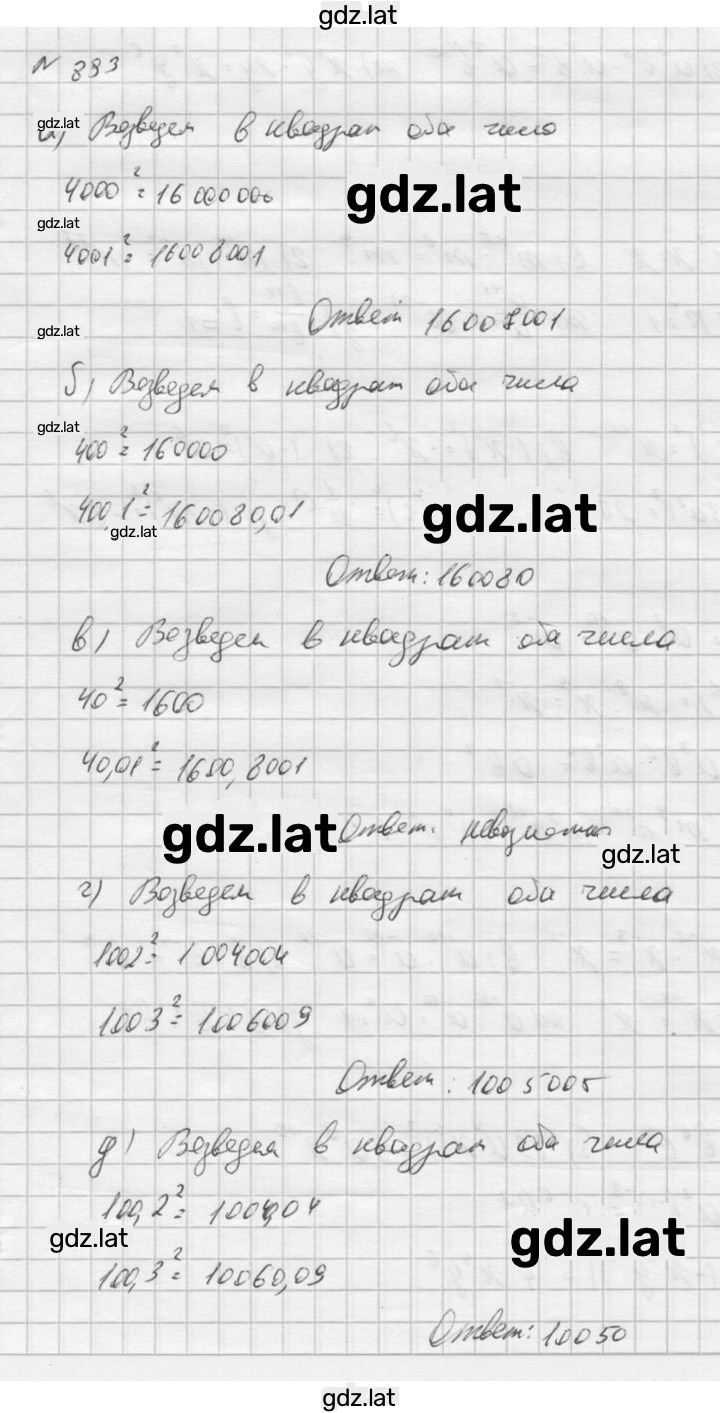 gdz.lat
N 893
gdz.lat
а) Возведем в квадрат оба число
4000² = 16 000 000
gdz.lat
gdz.lat
4001² = 16008001
gdz.lat
Ответ 16007001
б) Возведем в квадрат оба числа
gdz.lat
400² = 160000
400,1² = 160080,01
gdz.lat
gdz.lat
Ответ: 160080
в) Возведем в квадрат оба числа
40² = 1600
40,01² = 1600,8001
gdz.lat
Ответ: невозможно
gdz.lat
г) Возведем в квадрат оба числа
1002² = 1004004
1003² = 1006009
Ответ: 1005005
д) Возведем в квадрат оба числа
100,2² = 10040,04
gdz.lat
gdz.lat
100,3² = 10060,09
Ответ: 10050
gdz.lat